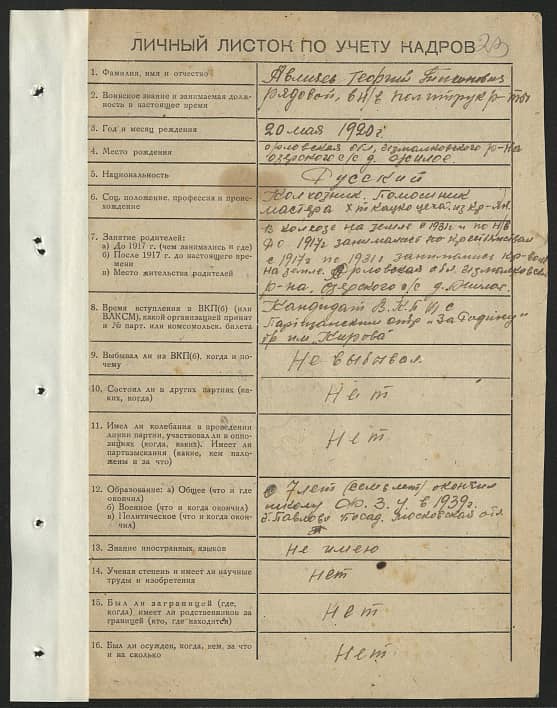 ЛИЧНЫЙ ЛИСТОК ПО УЧЕТУ КАДРОВ
1. Фамилия, имя и отчество
Георгий
2. Воинское звание и занимаемая долж-
ность в настоящее время
рядовой, в н/в политрук р-ты
3. Год и месяц рождения
20 мая 1920 г
4. Место рождения
орловская обл,
с/с д.
5. Национальность
Русский
6. Соц. положение, профессия и проис-
хождение
Колхозник. Помошник
мастера из кр-ян.
7. Занятие родителей:
а) До 1917 г. (чем занимались и где)
б) После 1917 г. до настоящего вре-
мени
в) Место жительства родителей
В колхозе на земле с 1931 г и по н/в
До 1917г занимались
с 1917г по 1931г занимались
на земле. Орловская обл.
р-на, с/с д.
8. Время вступления в ВКП(б) (или
ВЛКСМ), какой организацией принят
и № парт. или комсомольск. билета
Кандидат В.К.П
Партизанским отр „За Родину"
бр им „Кирова"
9. Выбывал ли из ВКП(б), когда и по-
чему
Не выбывал
10. Состоял ли в других партиях (ка-
ких, когда)
Нет
11. Имел ли колебания в проведении
линии партии, участвовал ли в оппо-
зициях (когда, каких). Имеет ли
партвзыскания (какие, кем нало-
жены и за что)
Нет
12. Образование: а) Общее (что и где
окончил)
б) Военное (что и когда окончил)
в) Политическое (что и когда окон-
чил)
7 лет (семь лет) окончил
школу Ф. З. У в 1939г.
Посад, Московская обл
13. Знание иностранных языков
Не имею
14. Ученая степень и имеет ли научные
труды и изобретения
Нет
15. Был ли заграницей (где,
когда) имеет ли родственников за
границей (кто, где находится)
Нет
16. Был ли осужден, когда, кем, за что
и на сколько
Нет